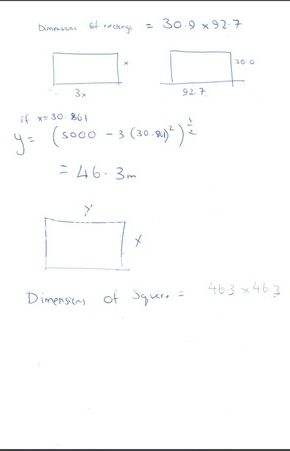 Dimensions of rectange = 30.9 x 92.7
x
3x
30.0
92.7
if x=30.861
y= (5000 - 3 (30.861)²)^½
= 46.3m
y
x
Dimensions of Square = 46.3 x 46.3